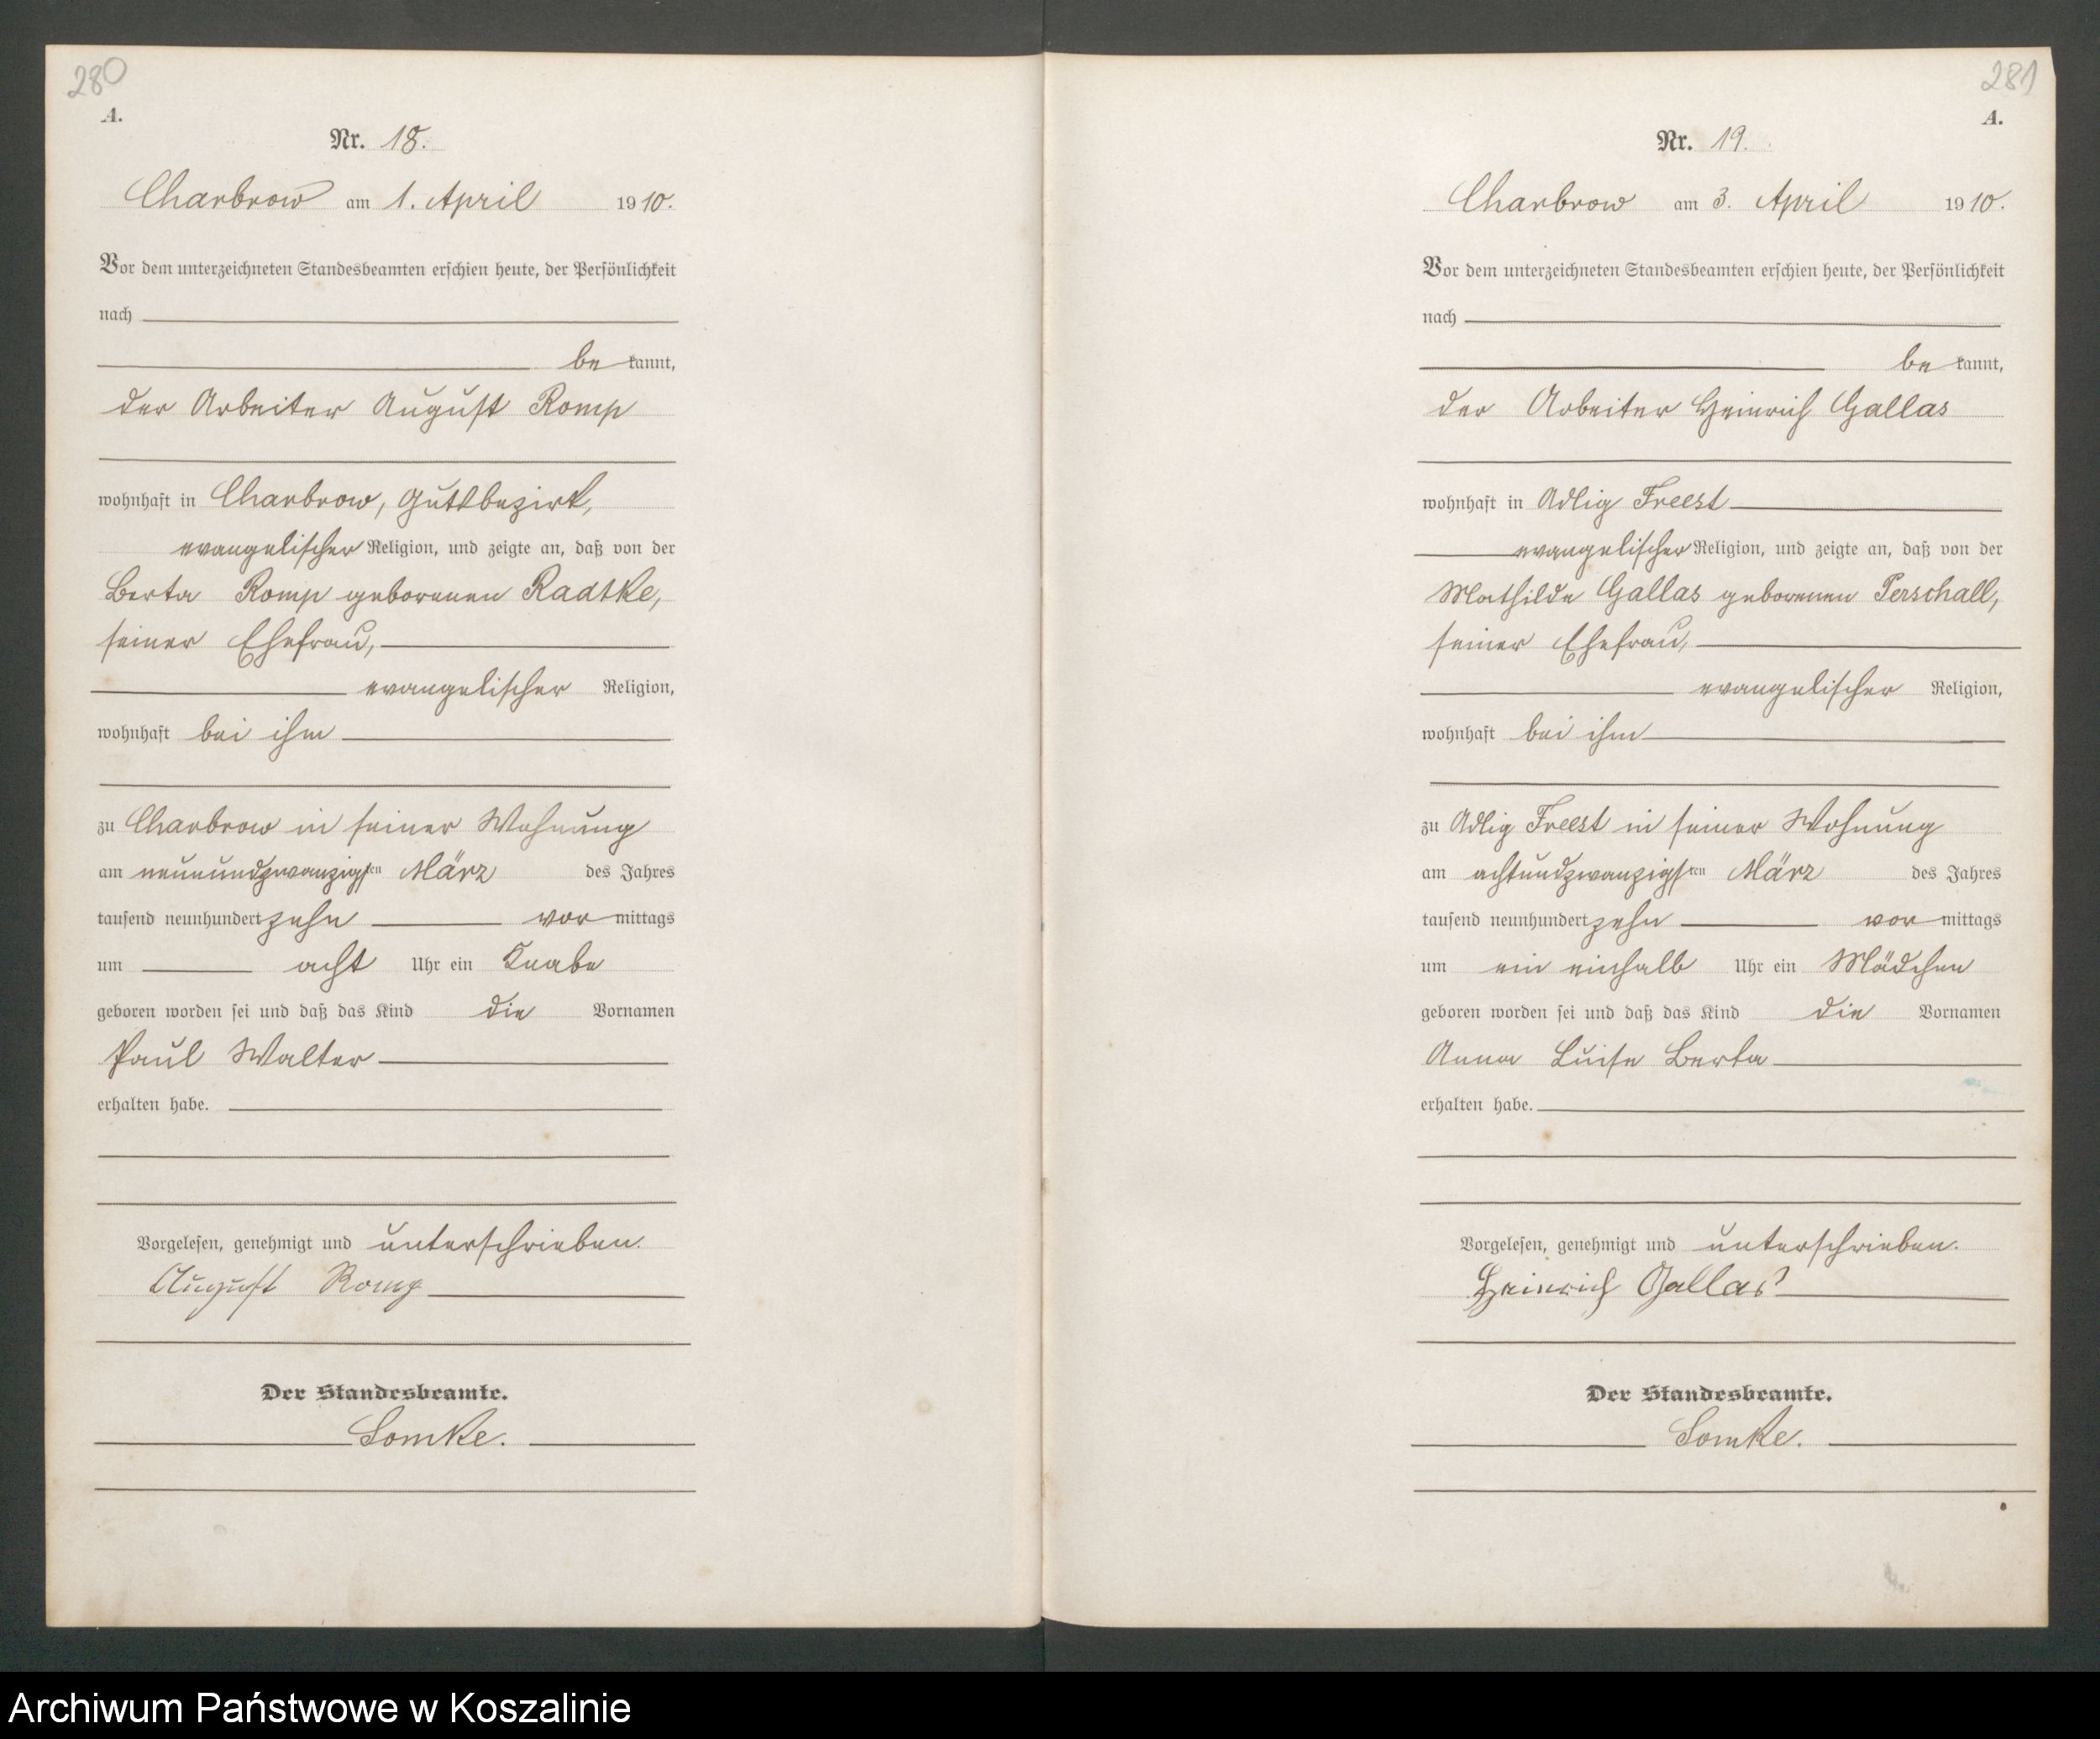 280
A.
Nr. 18.
Charbrow am 1. April 1910.
Vor dem unterzeichneten Standesbeamten erschien heute, der Persönlichkeit
nach
be kannt,
der Arbeiter August Romp
wohnhaft in Charbrow, Gutsbezirk,
evangelischer Religion, und zeigte an, daß von der
Berta Romp geborenen Raatke,
seiner Ehefrau,
evangelischer Religion,
wohnhaft bei ihm
zu Charbrow in seiner Wohnung
am neunundzwanzigsten März des Jahres
tausend neunhundert zehn vor mittags
um acht Uhr ein Knabe
geboren worden sei und daß das Kind die Vornamen
Paul Walter
erhalten habe.
Vorgelesen, genehmigt und unterschrieben.
August Romp
Der Standesbeamte.
Lomke.
281
A.
Nr. 19.
Charbrow am 3. April 1910.
Vor dem unterzeichneten Standesbeamten erschien heute, der Persönlichkeit
nach
be kannt,
der Arbeiter Heinrich Gallas
wohnhaft in Adlig Freest
evangelischer Religion, und zeigte an, daß von der
Mathilde Gallas geborenen Perschall,
seiner Ehefrau,
evangelischer Religion,
wohnhaft bei ihm
zu Adlig Freest in seiner Wohnung
am achtundzwanzigsten März des Jahres
tausend neunhundert zehn vor mittags
um ein einhalb Uhr ein Mädchen
geboren worden sei und daß das Kind die Vornamen
Anna Luise Berta
erhalten habe.
Vorgelesen, genehmigt und unterschrieben.
Heinrich Gallas
Der Standesbeamte.
Lomke.
Archiwum Państwowe w Koszalinie